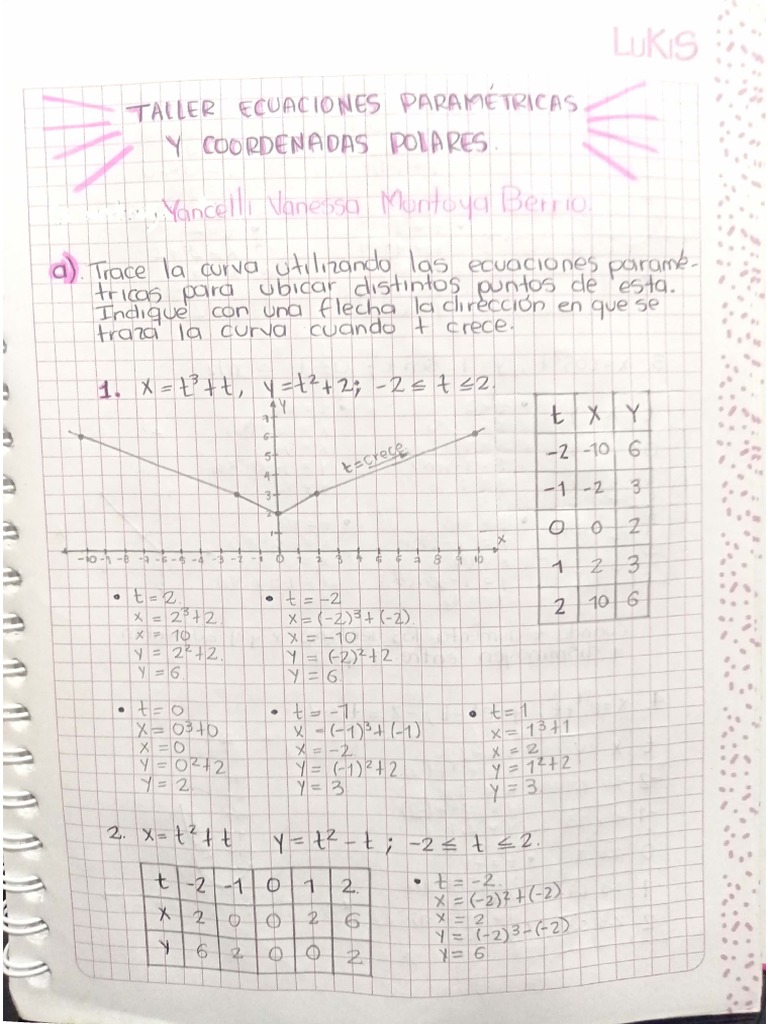 LUKIS
TALLER ECUACIONES PARAMÉTRICAS
Y COORDENADAS POLARES.
Yancelli Vanessa Montoya Berrio.
a). Trace la curva utilizando las ecuaciones paramé-
tricas para ubicar distintos puntos de esta.
Indique con una flecha la dirección en que se
traza la curva cuando t crece.
1. x = t³ + t, y = t² + 2; -2 ≤ t ≤ 2.
t x y
-2 -10 6
-1 -2 3
0 0 2
1 2 3
2 10 6
y
7
6
5
4
3
2
1
t = crece
x
-10 -9 -8 -7 -6 -5 -4 -3 -2 -1 0 1 2 3 4 5 6 7 8 9 10
• t = 2
x = 2³ + 2
x = 10
y = 2² + 2
y = 6
• t = -2
x = (-2)³ + (-2)
x = -10
y = (-2)² + 2
y = 6
• t = 0
x = 0³ + 0
x = 0
y = 0² + 2
y = 2
• t = -1
x = (-1)³ + (-1)
x = -2
y = (-1)² + 2
y = 3
• t = 1
x = 1³ + 1
x = 2
y = 1² + 2
y = 3
2. x = t² + t y = t² - t ; -2 ≤ t ≤ 2.
t -2 -1 0 1 2
x 2 0 0 2 6
y 6 2 0 0 2
• t = -2
x = (-2)² + (-2)
x = 2
y = (-2)³ - (-2)
y = 6